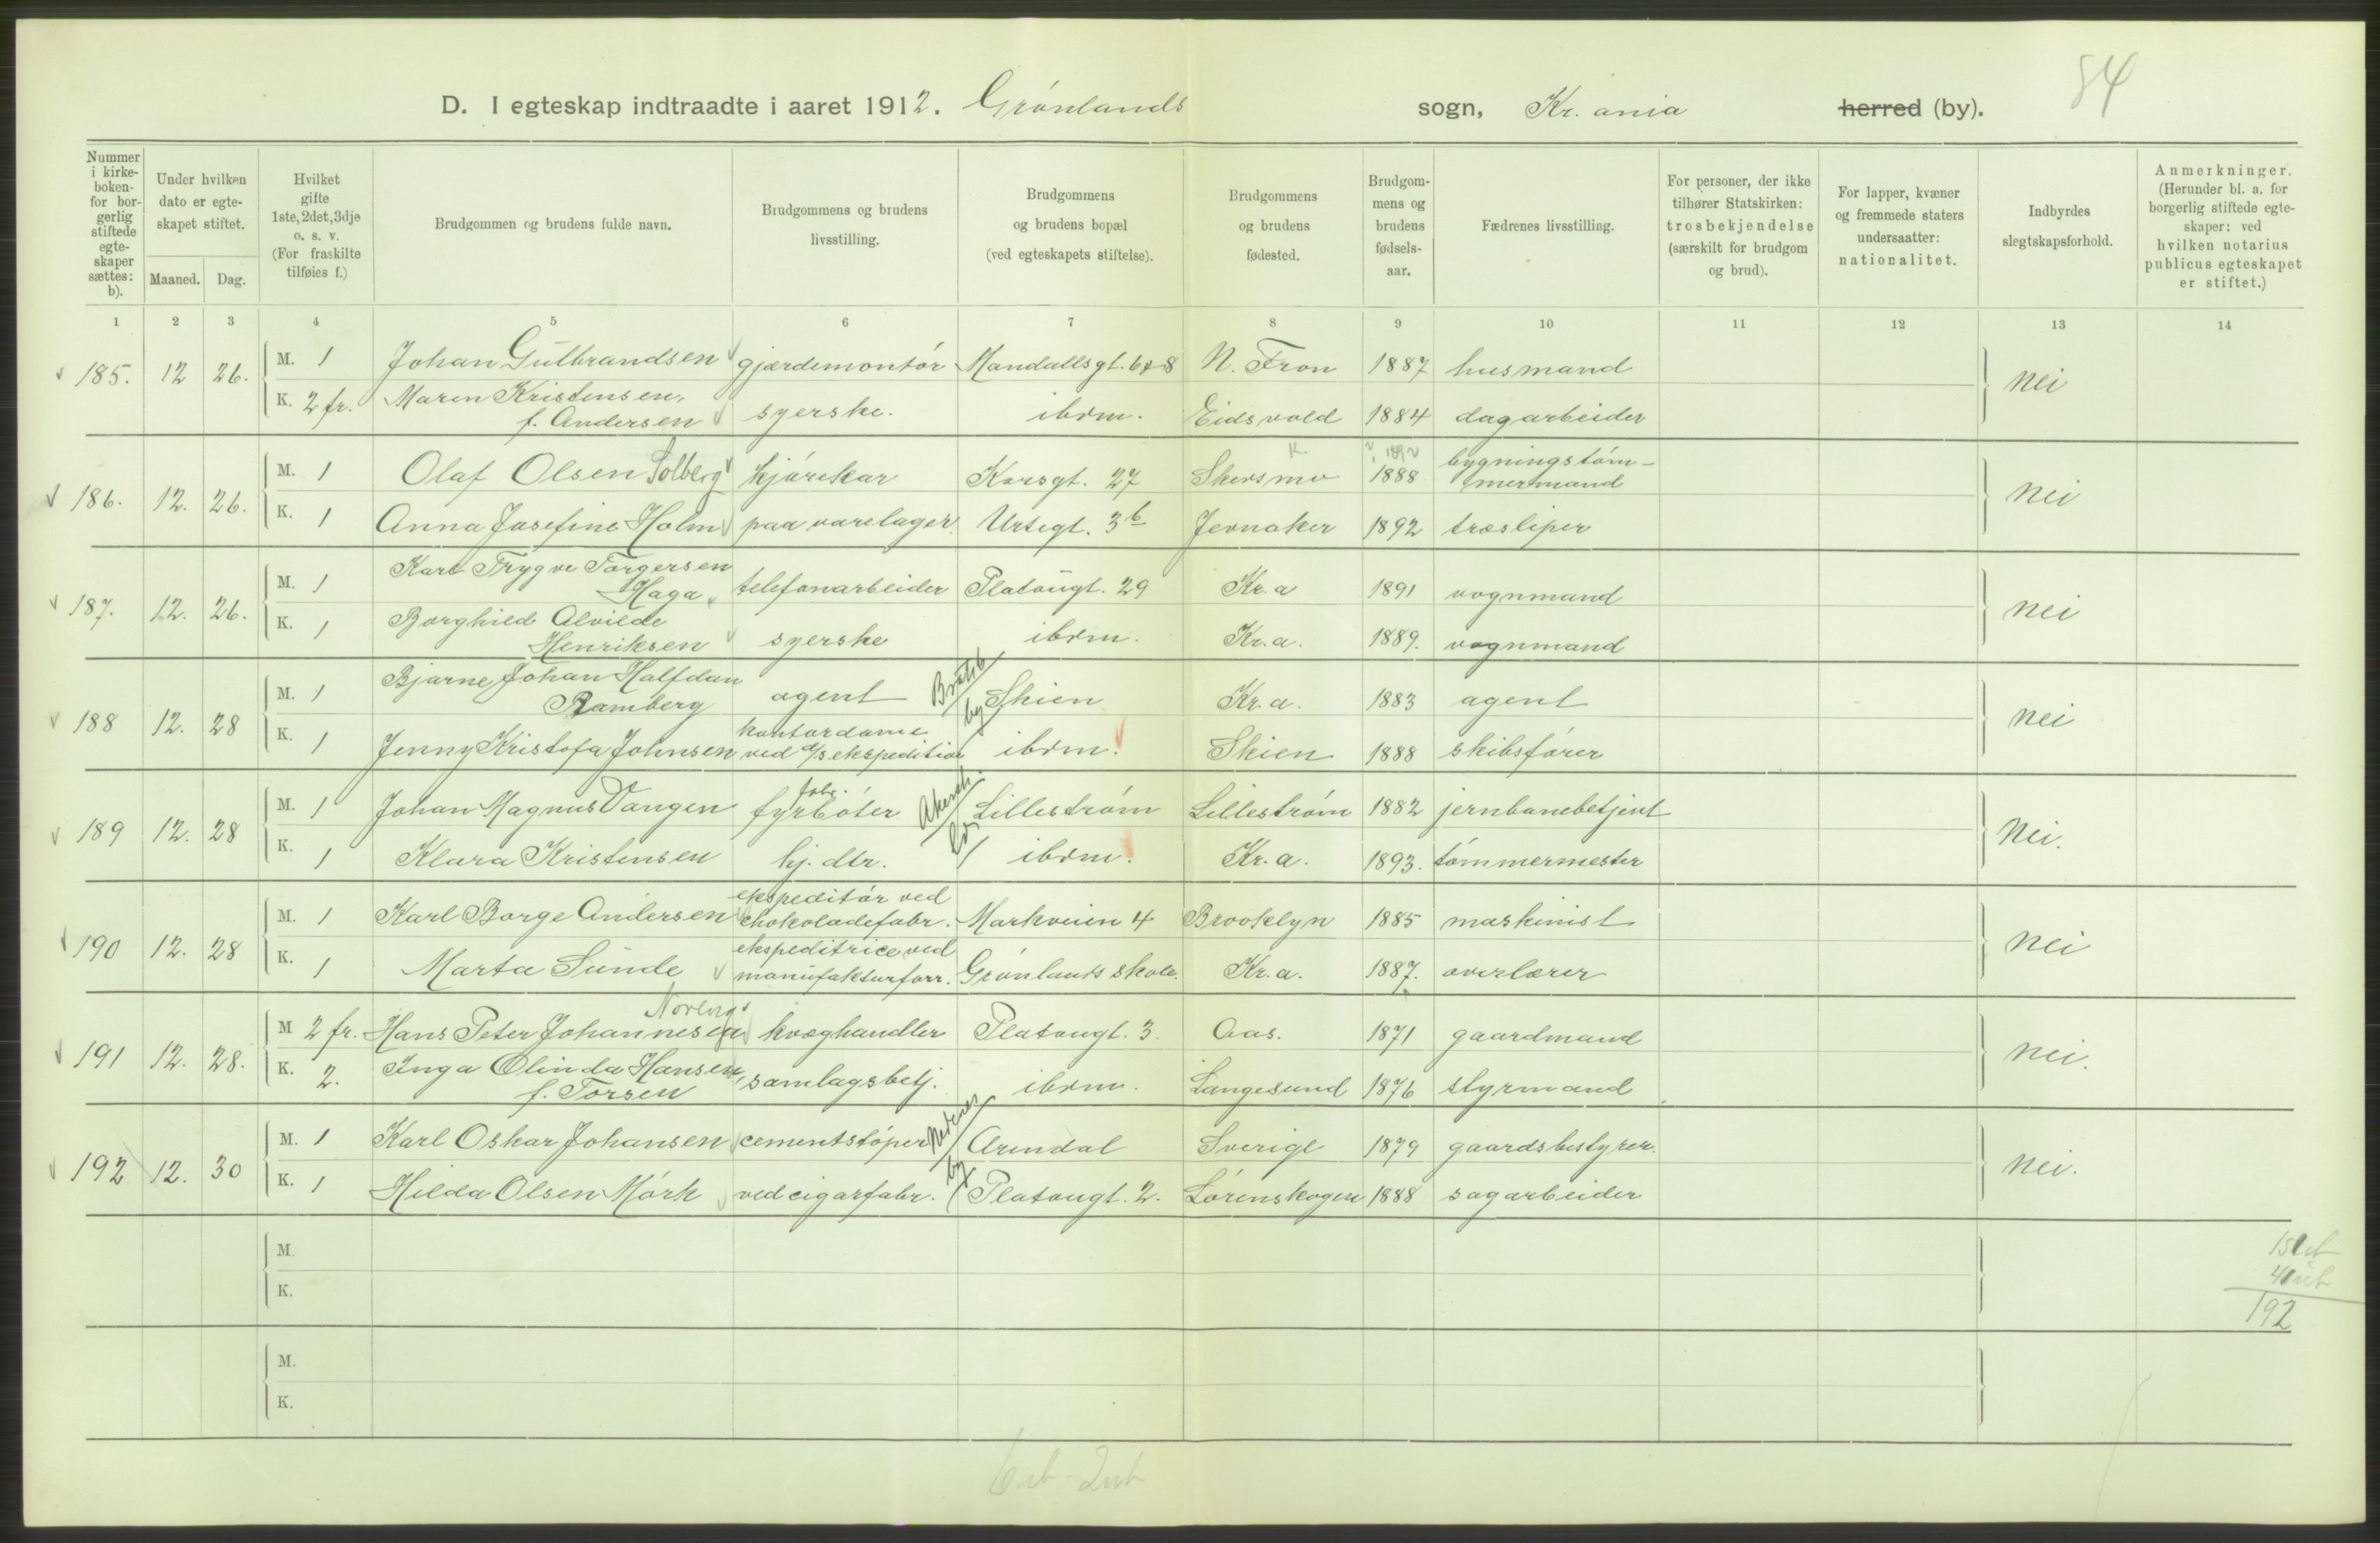 84
D. I egteskap indtraadte i aaret 1912. Grönlands sogn, Kr.ania herred (by).
Nummer i kirke-boken- for bor-gerlig stiftede egte-skaper sættes: b).
Under hvilken dato er egte-skapet stiftet.
Maaned. Dag.
Hvilket gifte 1ste, 2det, 3dje o. s. v. (For fraskilte tilføies f.)
Brudgommen og brudens fulde navn.
Brudgommens og brudens livsstilling.
Brudgommens og brudens bopæl (ved egteskapets stiftelse).
Brudgommens og brudens fødested.
Brudgom-mens og brudens fødsels-aar.
Fædrenes livsstilling.
For personer, der ikke tilhører Statskirken: trosbekjendelse (særskilt for brudgom og brud).
For lapper, kvæner og fremmede staters undersaatter: nationalitet.
Indbyrdes slegtskapsforhold.
Anmerkninger. (Herunder bl. a. for borgerlig stiftede egte-skaper: ved hvilken notarius publicus egteskapet er stiftet.)
1 2 3 4 5 6 7 8 9 10 11 12 13 14
185. 12 26. M. 1 Johan Gulbrandsen gjærdemontör Mandallsgt. 6+8 N. Fron 1887 husmand nei
K. 2 fr. Maren Kristensen, f. Andersen syerske. ibdm. Eidsvold 1884 dagarbeider
186. 12. 26. M. 1 Olaf Olsen Solberg kjörekar Korsgt. 27 Skedsmo K. 1888 bygningstöm-mermand nei
K. 1 Anna Josefine Holm paa varelager Urtegt. 3b Jevnaker 1892 træsliper
187. 12. 26. M. 1 Karl Trygve Torgersen Haga telefonarbeider Platougt. 29 Kr.a 1891 vognmand nei
K. 1 Borghild Alvilde Henriksen syerske ibdm. Kr.a. 1889. vognmand
188 12. 28 M. 1 Bjarne Johan Halfdan Ramberg agent Bratsb by Skien Kr.a. 1883 agent nei
K. 1 Jenny Kristofa Johnsen kontordame ved a/s ekspedition ibdm. Skien 1888 skibsförer
189 12. 28 M. 1 Johan Magnus Vangen fabr. fyrböter Akersh. Lilleström Lilleström 1882 jernbanebetjent nei.
K. 1 Klara Kristensen hj. dtr. ibdm. Kr.a. 1893. tömmermester
190 12. 28 M. 1 Karl Borge Andersen ekspeditör ved chokoladefabr. Markveien 4 Brooklyn 1885 maskinist nei
K. 1 Marta Sunde ekspeditrice ved manufakturforr. Grönlands skole. Kr.a. 1887. overlærer
191 12. 28. M 2 fr. Hans Peter Johannesen kvæghandler Platougt. 3 Aas. 1871 gaardmand nei.
K. 2. Inga Olinda Hansen, f. Torsen samlagsbetj. ibdm. Langesund 1876 styrmand
192 12. 30 M. 1 Karl Oskar Johansen cementstöper Nedenes by Arendal Sverige 1879 gaardsbestyrer. nei.
K. 1 Hilda Olsen Mörk ved cigarfabr. Platougt. 2. Lörenskogen 1888 sagarbeider
M.
K.
M.
K.
192